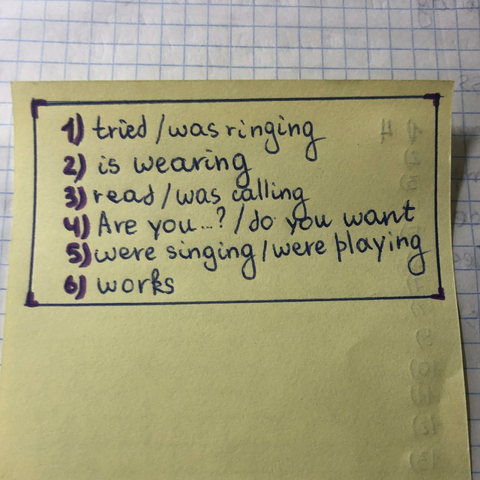 1) tried/was ringing
2) is wearing
3) read/was calling
4) Are you...?/do you want
5) were singing/were playing
6) works